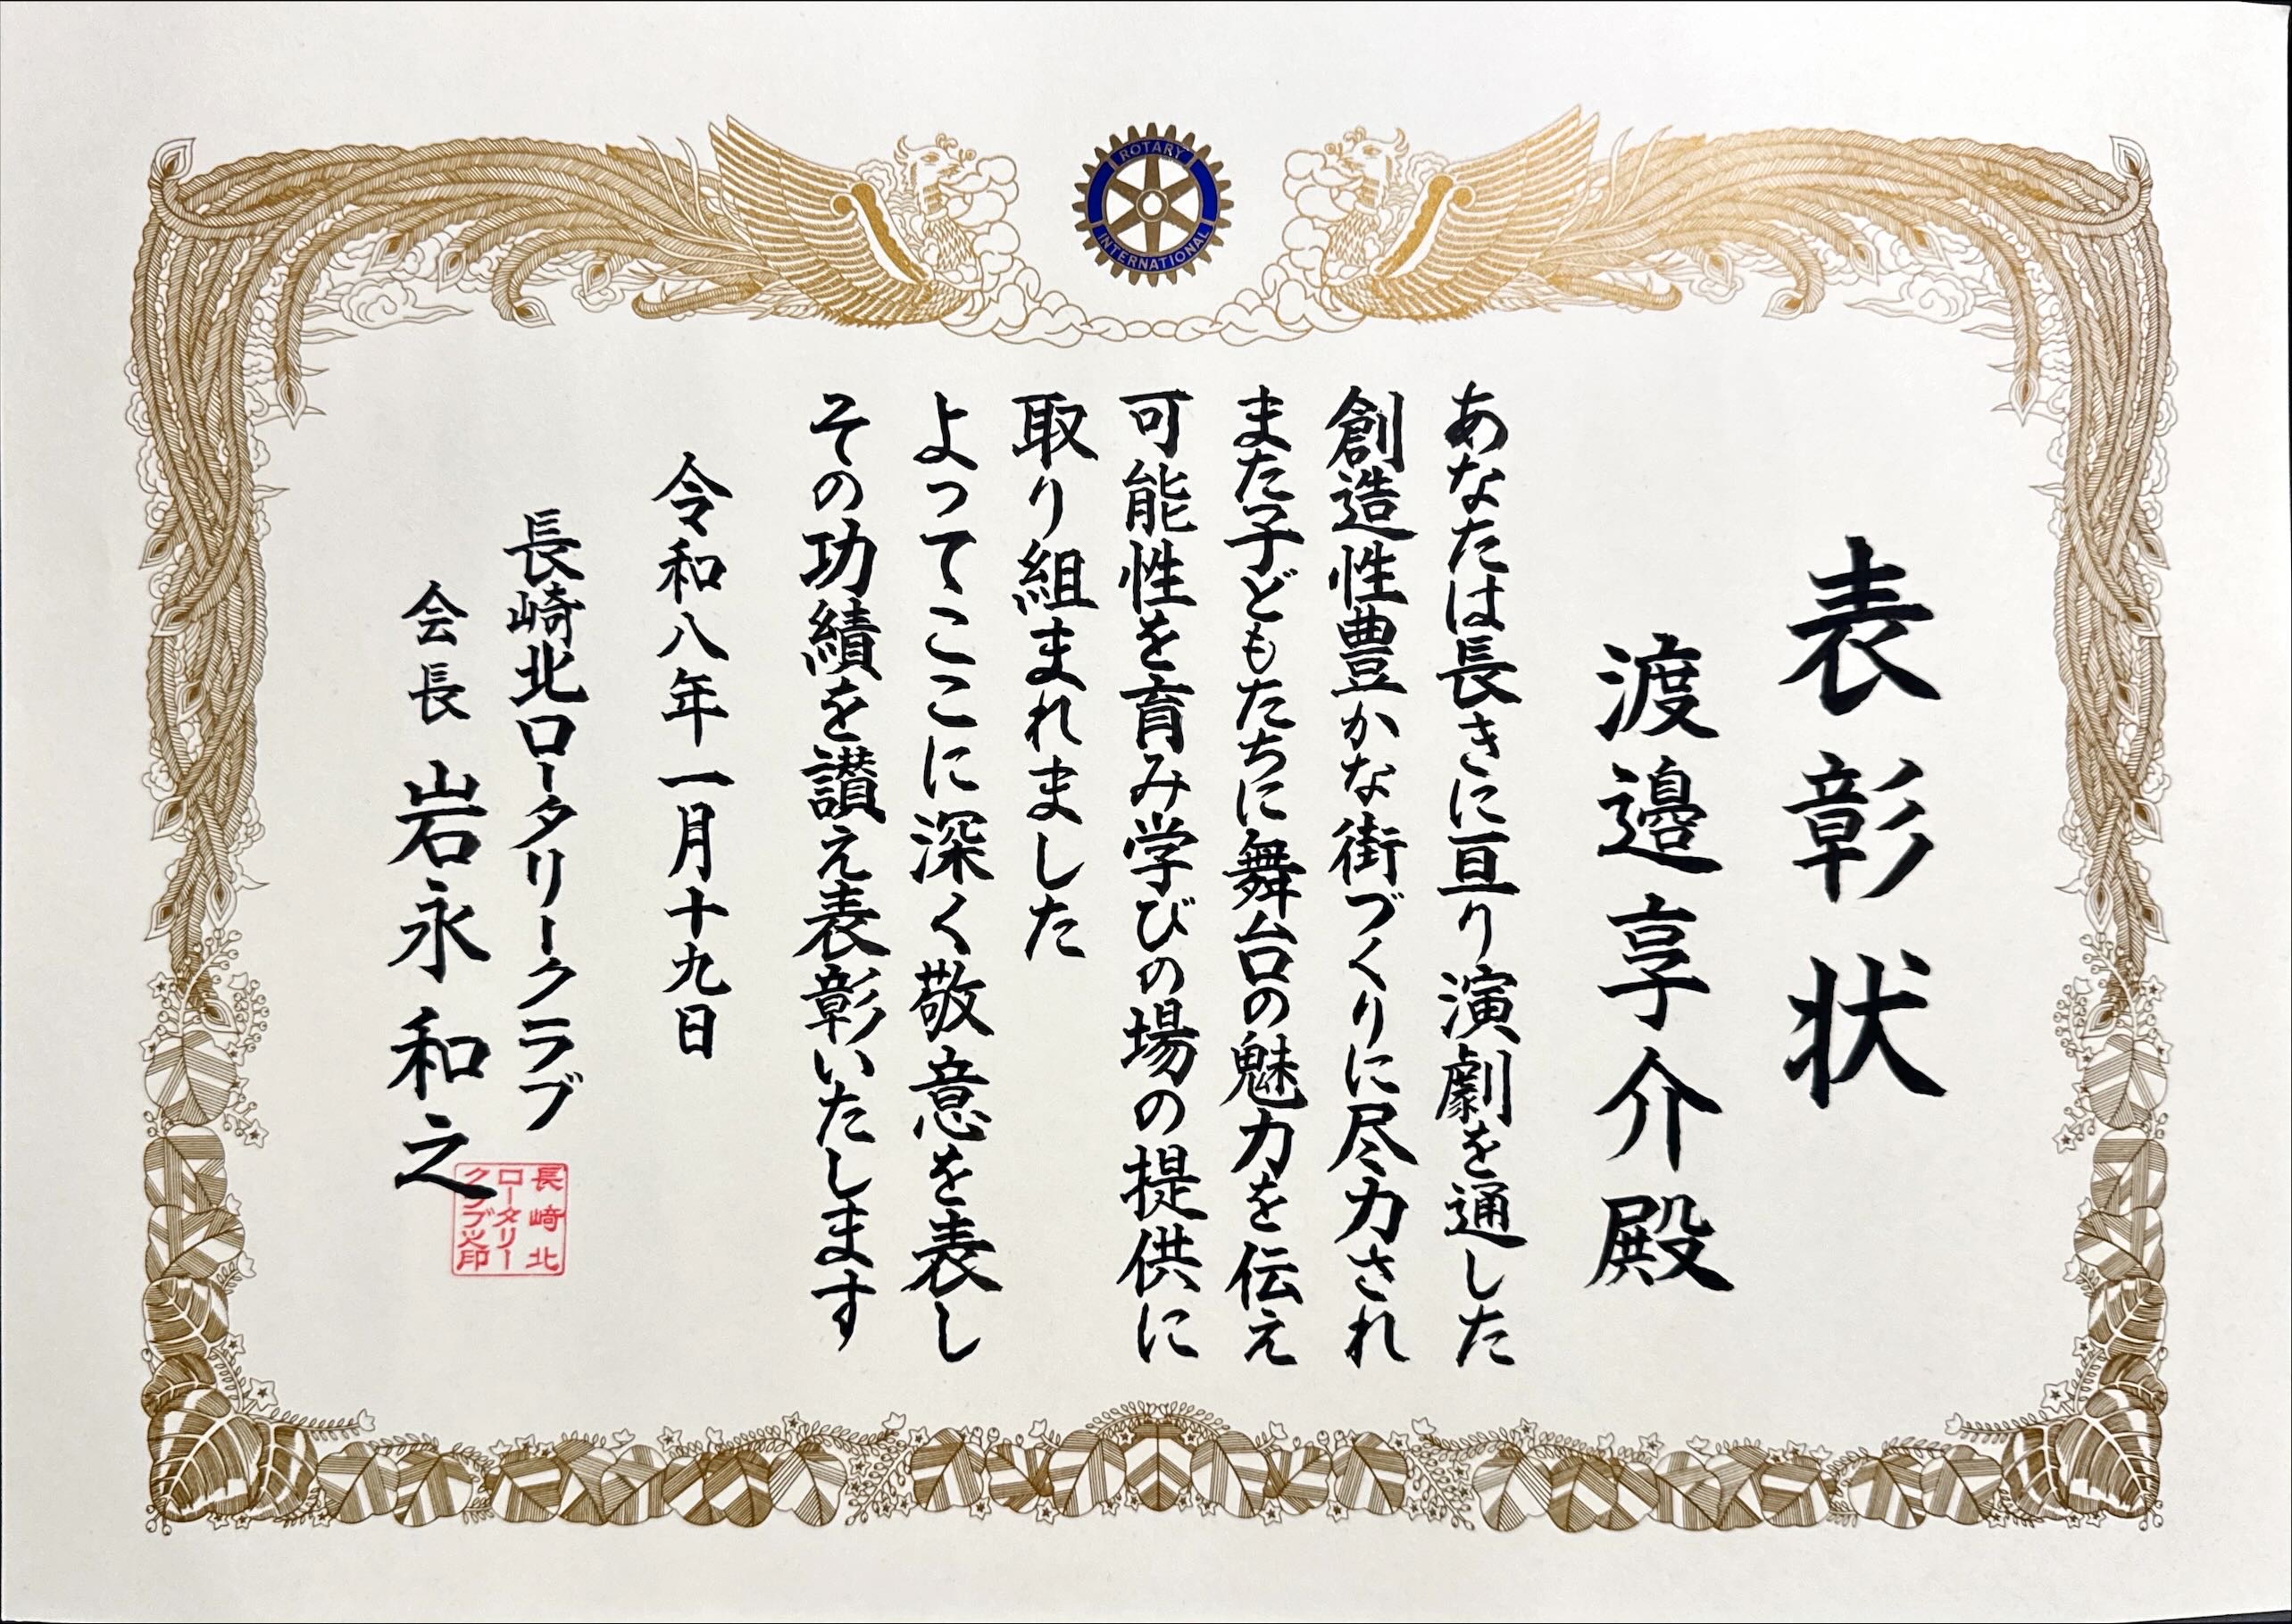 ROTARY
INTERNATIONAL
表彰状
渡邉享介殿
あなたは長きに亘り演劇を通した
創造性豊かな街づくりに尽力され
また子どもたちに舞台の魅力を伝え
可能性を育み学びの場の提供に
取り組まれました
よってここに深く敬意を表し
その功績を讃え表彰いたします
令和八年一月十九日
長崎北ロータリークラブ
会長 岩永和之
長崎北
ロータリー
クラブ之印